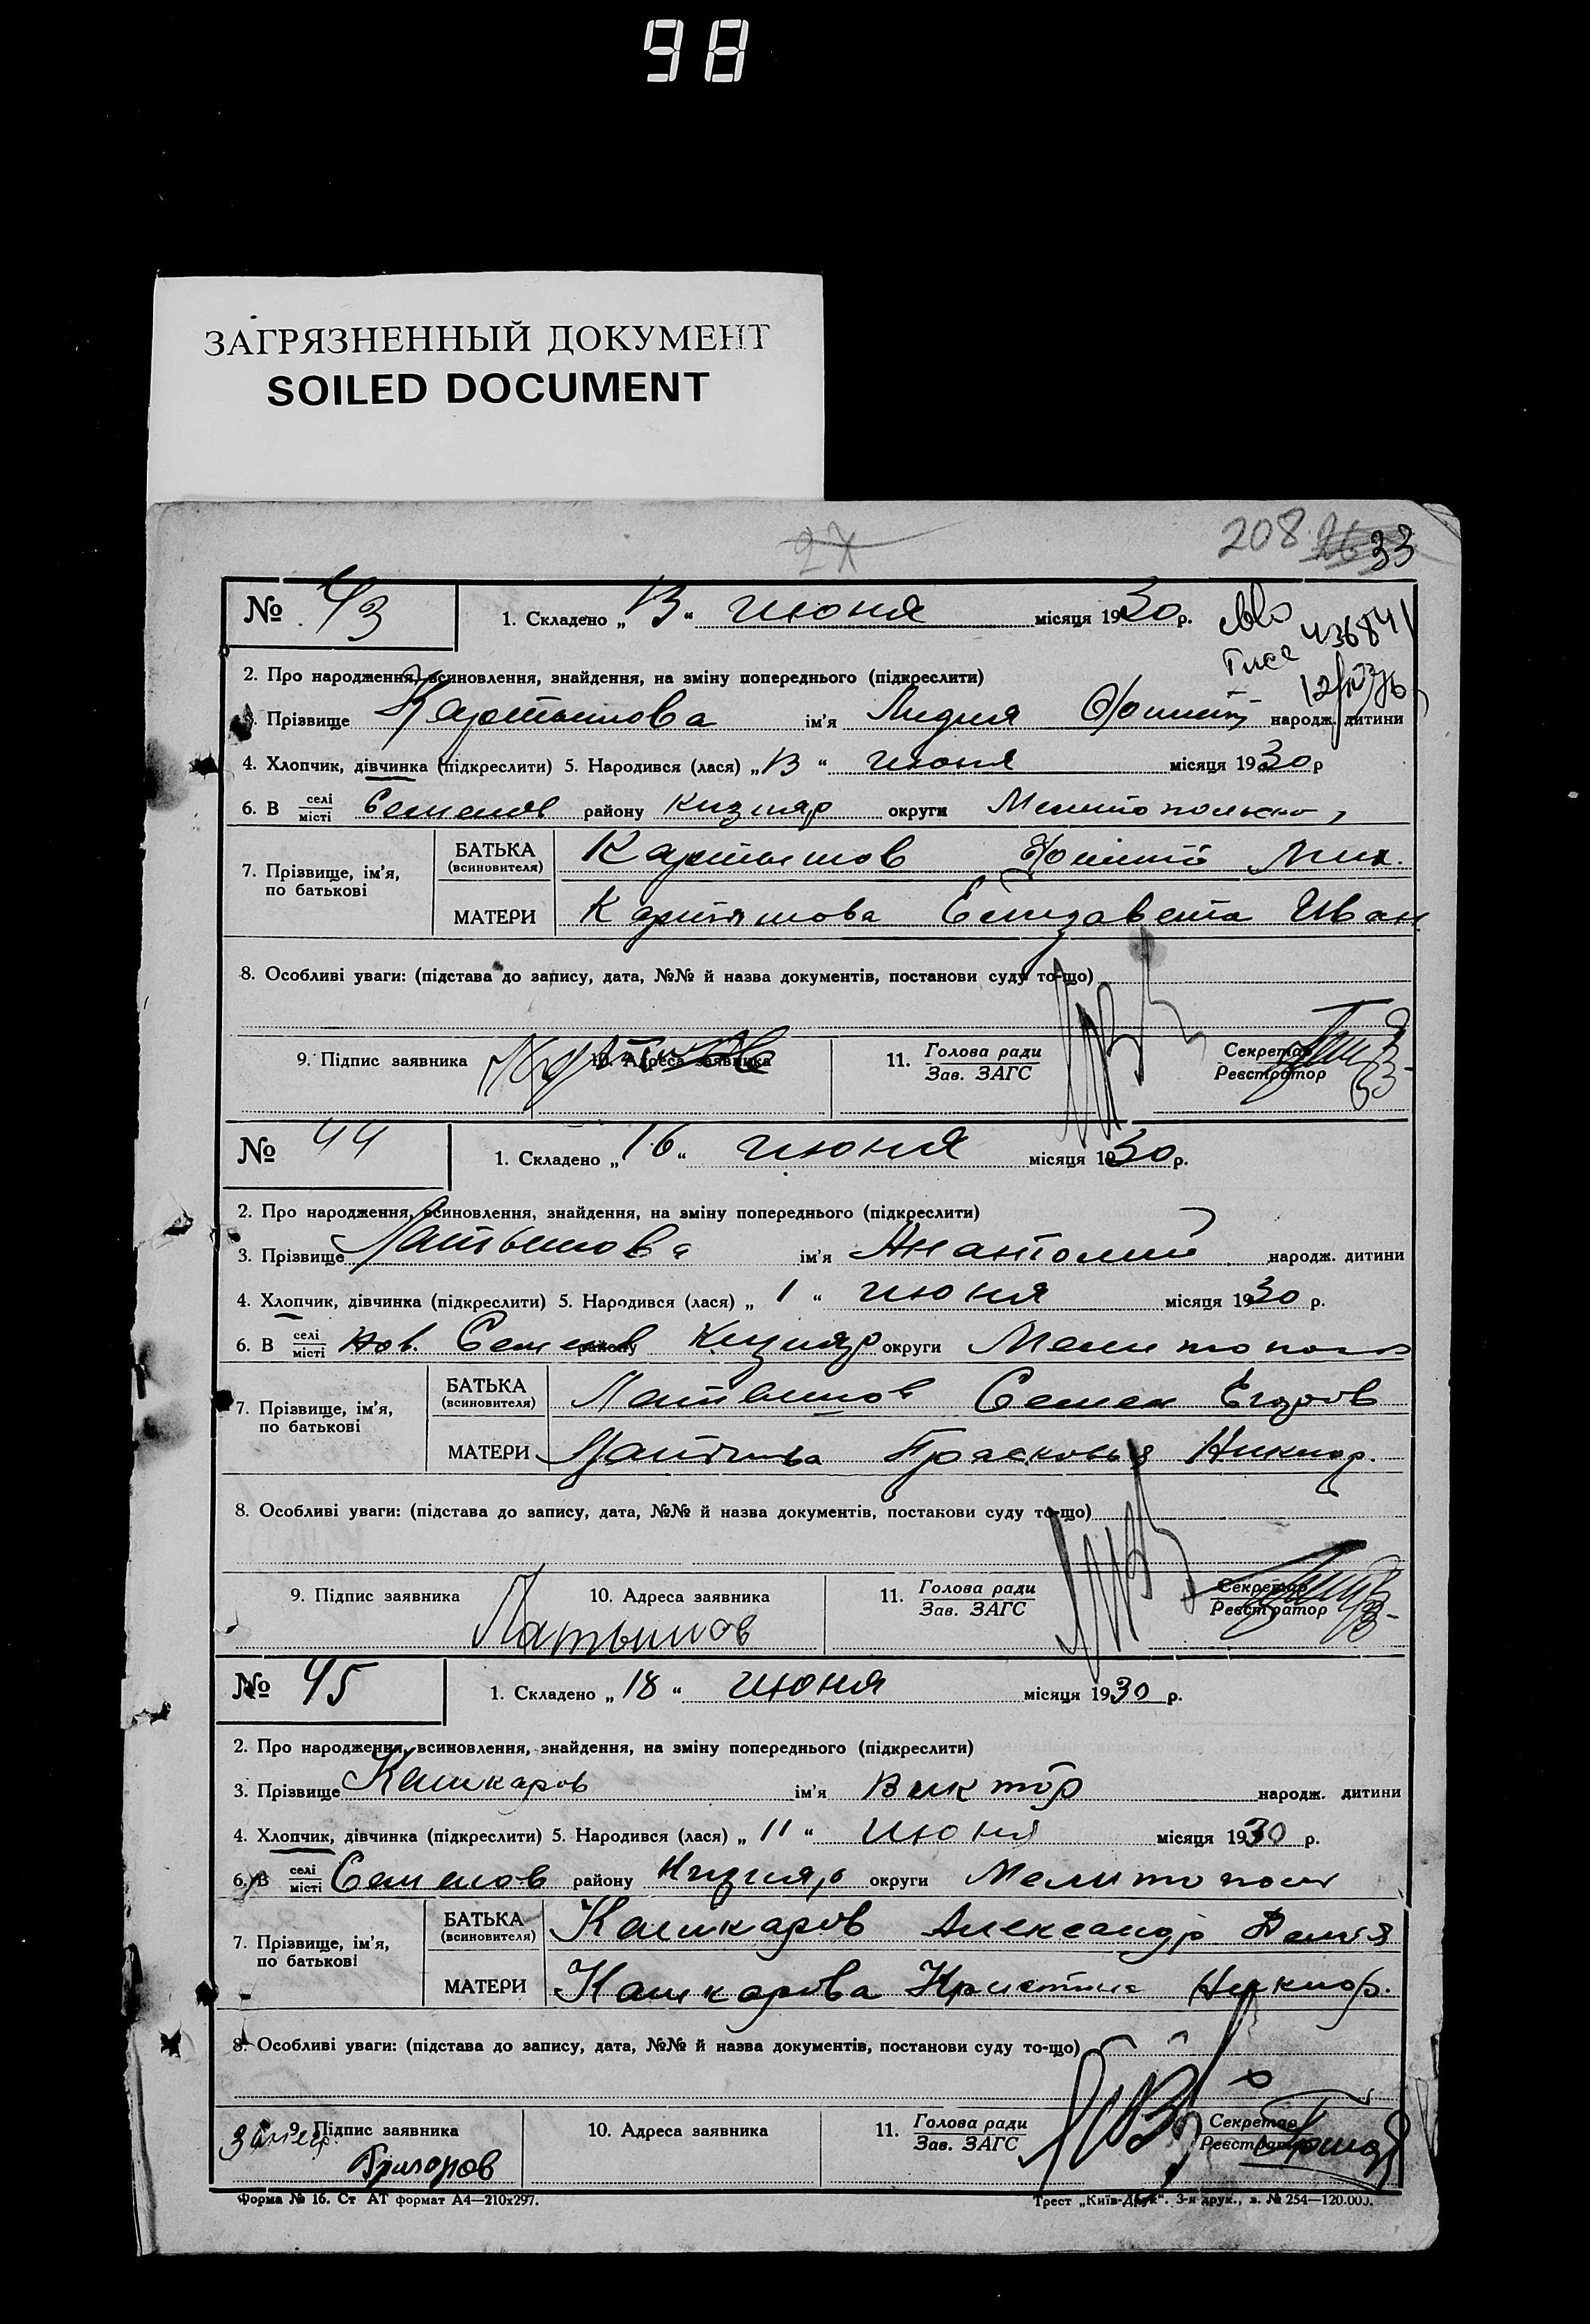 98
ЗАГРЯЗНЕННЫЙ ДОКУМЕНТ
SOILED DOCUMENT
27
208 33
№ 43 1. Складено „13“ июня місяця 1930 р.
436841
2. Про народження, всиновлення, знайдення, на зміну попереднього (підкреслити)
Прізвище Картышова ім'я Лидия народж. дитини
4. Хлопчик, дівчинка (підкреслити) 5. Народився (лася) „13“ июня місяця 1930 р
6. В селі місті Семенов району Кизияр округи Мелитополько
7. Прізвище, ім'я, по батькові
БАТЬКА (всиновителя) Картышов Мих.
МАТЕРИ Картышова Елизавета Иван
8. Особливі уваги: (підстава до запису, дата, №№ й назва документів, постанови суду то-що)
9. Підпис заявника 10. Адреса заявника 11. Голова ради Зав. ЗАГС Секретар Реєстратор
№ 44 1. Складено „16“ июня місяця 1930 р.
2. Про народження, всиновлення, знайдення, на зміну попереднього (підкреслити)
3. Прізвище Латышова ім'я Анатолий народж. дитини
4. Хлопчик, дівчинка (підкреслити) 5. Народився (лася) „1“ июня місяця 1930 р.
6. В селі місті Нов. Семенов району Кизияр округи Мелитопол
7. Прізвище, ім'я, по батькові
БАТЬКА (всиновителя) Латышов Семен Егоров
МАТЕРИ Латышова Прасковья Никиор.
8. Особливі уваги: (підстава до запису, дата, №№ й назва документів, постанови суду то-що)
9. Підпис заявника Латышов 10. Адреса заявника 11. Голова ради Зав. ЗАГС Секретар Реєстратор
№ 45 1. Складено „18“ июня місяця 1930 р.
2. Про народження, всиновлення, знайдення, на зміну попереднього (підкреслити)
3. Прізвище Кашкаров ім'я Виктор народж. дитини
4. Хлопчик, дівчинка (підкреслити) 5. Народився (лася) „11“ июня місяця 1930 р.
6. В селі місті Семенов району Кизияр округи Мелитопол
7. Прізвище, ім'я, по батькові
БАТЬКА (всиновителя) Кашкаров Александр
МАТЕРИ Кашкарова Кристина Никиор.
8. Особливі уваги: (підстава до запису, дата, №№ й назва документів, постанови суду то-що)
9. Підпис заявника Григоров 10. Адреса заявника 11. Голова ради Зав. ЗАГС Секретар Реєстратор
Форма № 16. Ст АТ формат А4—210х297. Трест „Київ-Друк“. 3-я друк., з. № 254—120.000.